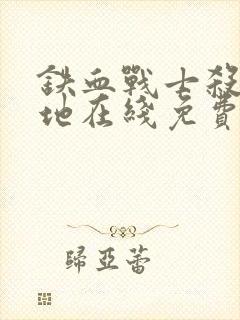 鉄血戰士殺
地在綫免費
歸亞蕾